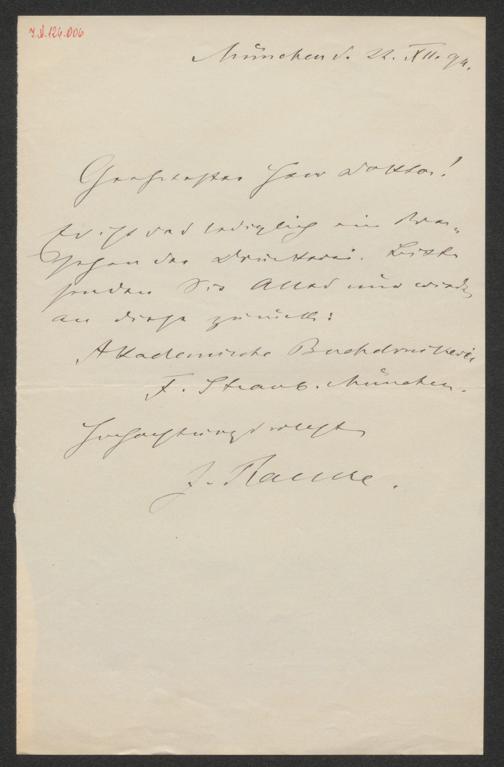 I.N. 126.006
München d. 22. XII. 94.
Geehrtester Herr Doktor!
Es ist das lediglich ein Ver-
sehen der Druckerei. Bitte
senden Sie Alles nur wieder
an diese zurück:
Akademische Buchdruckerei
F. Straub. München.
Hochachtungsvollst
J.